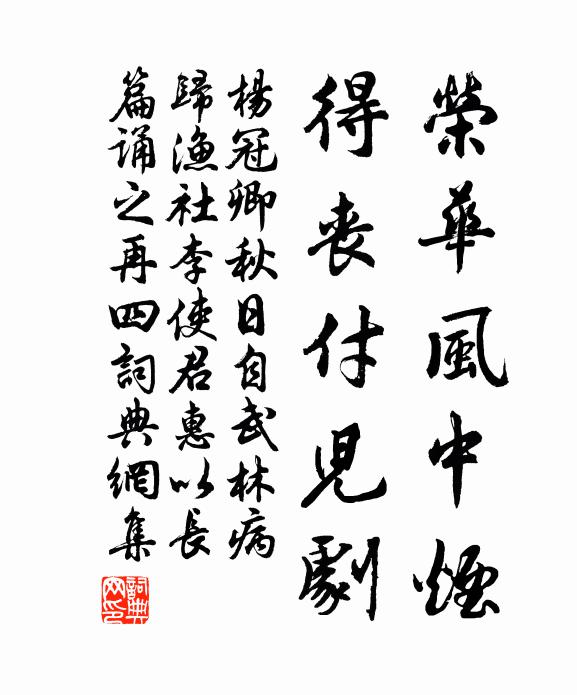 榮華風中煙
得喪付兒劇
楊冠卿秋日自武林病
歸漁社李使君惠以長
篇誦之再四詞典網集
詞典
网印